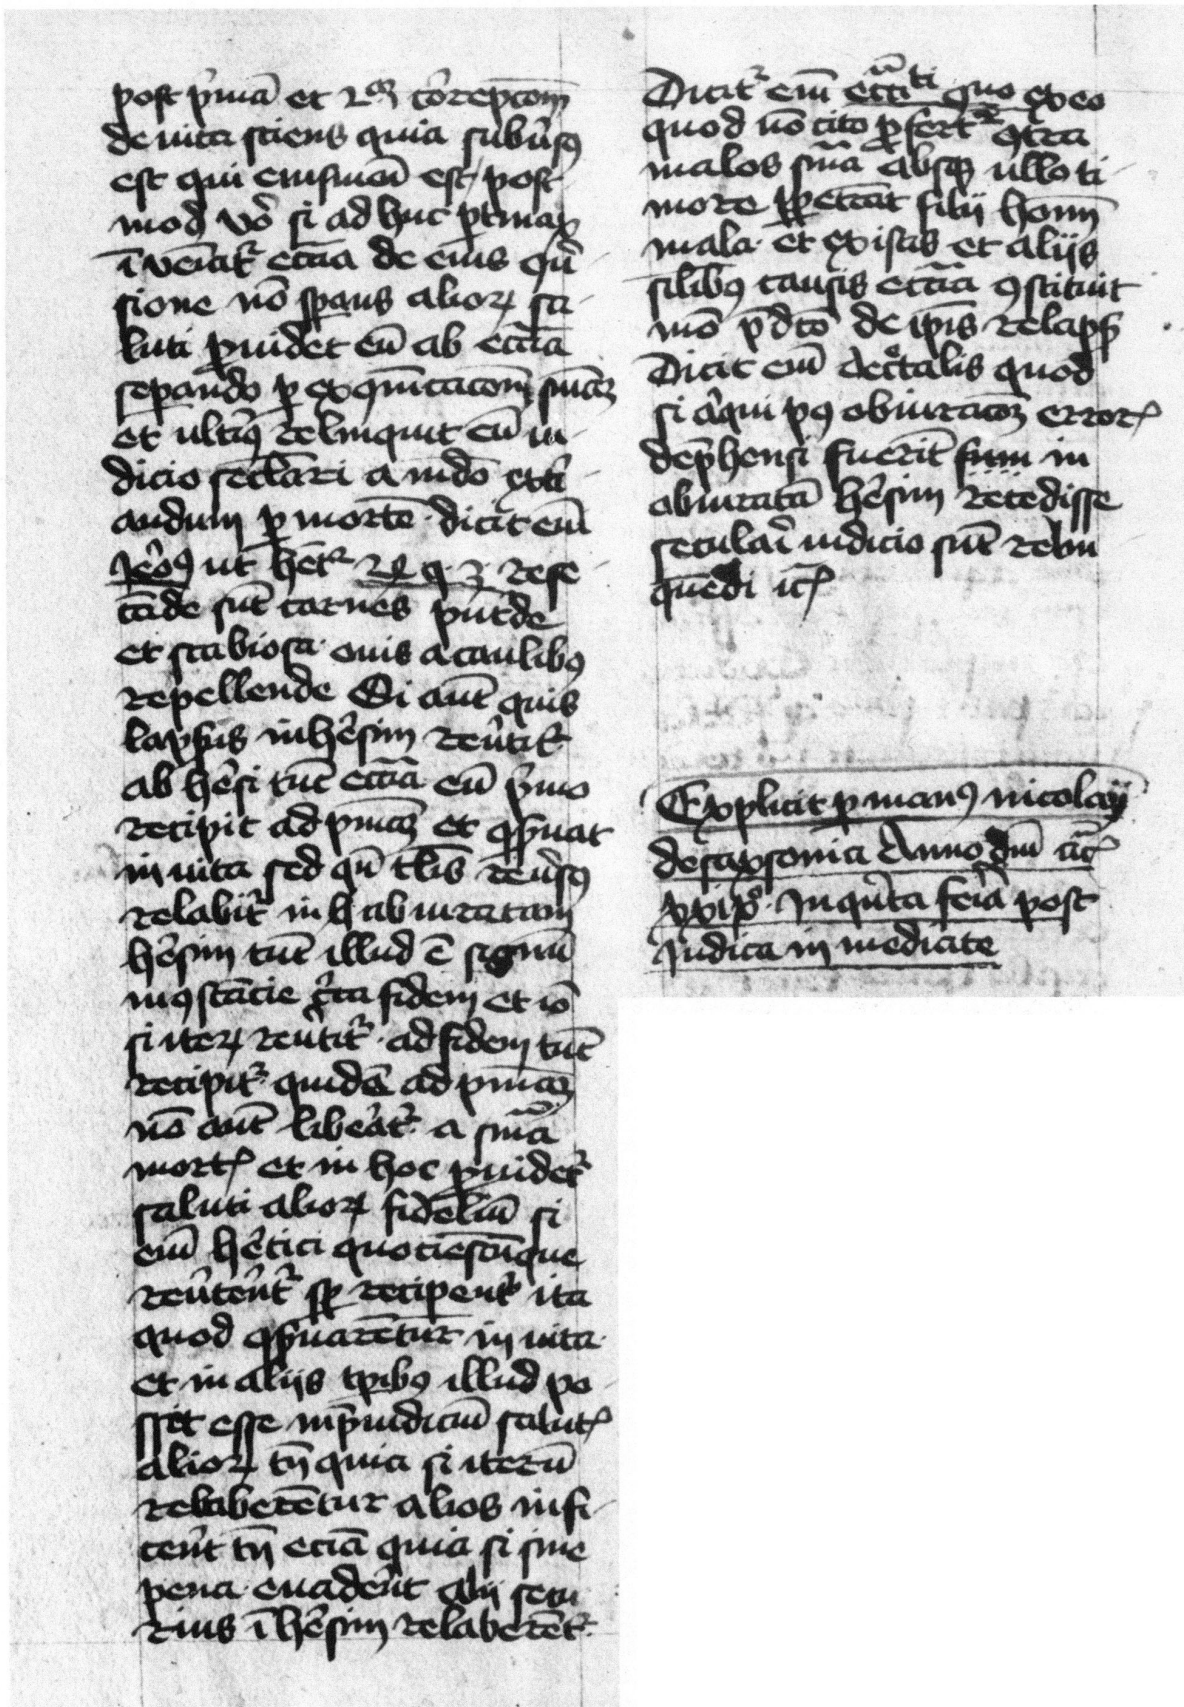 post p̄mā et 2ᵃᵐ cōrepcōm̄
deuita sciens quia subūsꝰ
est qui eiusmōi est post
mod vō si ad huc ptinax
ī veniatᷣ eccīa de eius qū
sione nō spans alioꝝ sa
luti ꝓuidet eū ab eccīa
sepando ꝑ exqm̄icacōm̄ sniam
et ultiꝰ relinquit eū iu
dicio seclāri a mūdo exti
andum ꝑ mortē dicit eni
Jeroꝰ ut hēt 24 q 3 rese
cāde sūt carnes putde
et scabiosa ouis acaulibꝰ
repellende Si aūt quis
lapsus inhēsim reūtitᷣ
ab hēsi tūc eccīa eū p̄mo
recipit ad pniam et ꝯsuat
in uita sed qn̄ tlīs reūsꝰ
relabitᷣ in h abiuratam
hēsim tūc illud ē signū
inꝯstācie cͣca fidem et iō
si iteꝝ reūtitᷣ ad fidem tūc
recipitᷣ quidē ad pniam
nō aūt liberatᷣ a snīa
mortꝭ et in hoc ꝓuidetᷣ
saluti alioꝝ fideliū si
eni hētici quociēscūque
reūtentᷣ sꝑ recipentᷣ ita
quod ꝯsuarētur in uita
et in aliis tpibꝰ illud po
ssit esse inp̄iudiciū salutꝭ
alioꝝ tn̄ quia si iterū
relaberētur alios infi
cerēt tn̄ eciā quia si sine
pena euaderēt alij secu
rius ī hēsim relaberētᷣ
Dicitᷣ eni ecciāti quo exeo
quod nō cito ꝓfertᷣ ꝯtra
malos snīa absqꝫ ullo ti
more ꝑpetrāt filii homī
mala et ex istis et aliis
silibꝰ causis eccīa ꝯstituit
mō p̄dcō de ipīs relapsis
Dicit eni decretalis quod
si aliqui pꝰ abiuracōꝫ errorꝭ
dep̄hensi fuerīt suū in
abiuratā hēsim recedisse
seculari iudicio sūt relin
quēdi ꝛcꝭ
Explicit ꝑ manꝰ nicolay
desaxsonia Anno dni ꝛcꝭ
xxixº Inqnta feria post
Judica in medicate